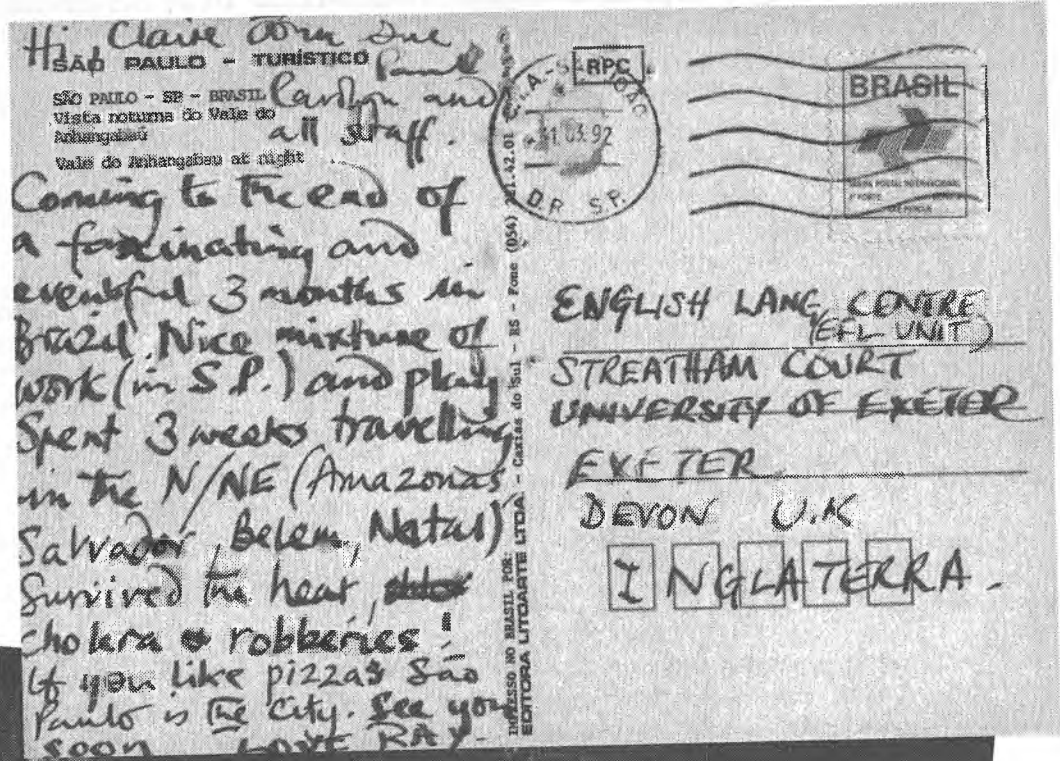 Hi Claire Sue
SÃO PAULO - TURÍSTICO
SÃO PAULO - SP - BRASIL
Vista noturna do Vale do
Anhangabaú
Vale do Anhangabau at night
Carolyn and
all staff.
Coming to the end of
a fascinating and
eventful 3 months in
Brazil. Nice mixture of
work (in S.P.) and play
Spent 3 weeks travelling
in the N/NE (Amazonas
Salvador, Belem, Natal)
Survived the heat,
cholera & robberies!
If you like pizzas São
Paulo is The City. See you
soon LOVE RAY.
IMPRESSO NO BRASIL POR:
EDITORA LITOARTE LTDA - Caxias do Sul - RS - Fone (054)
RPC
31.03.92
D.R. S.P.
BRASIL
ENGLISH LANG, CENTRE
(EFL UNIT)
STREATHAM COURT
UNIVERSITY OF EXETER
EXETER
DEVON U.K
INGLATERRA.